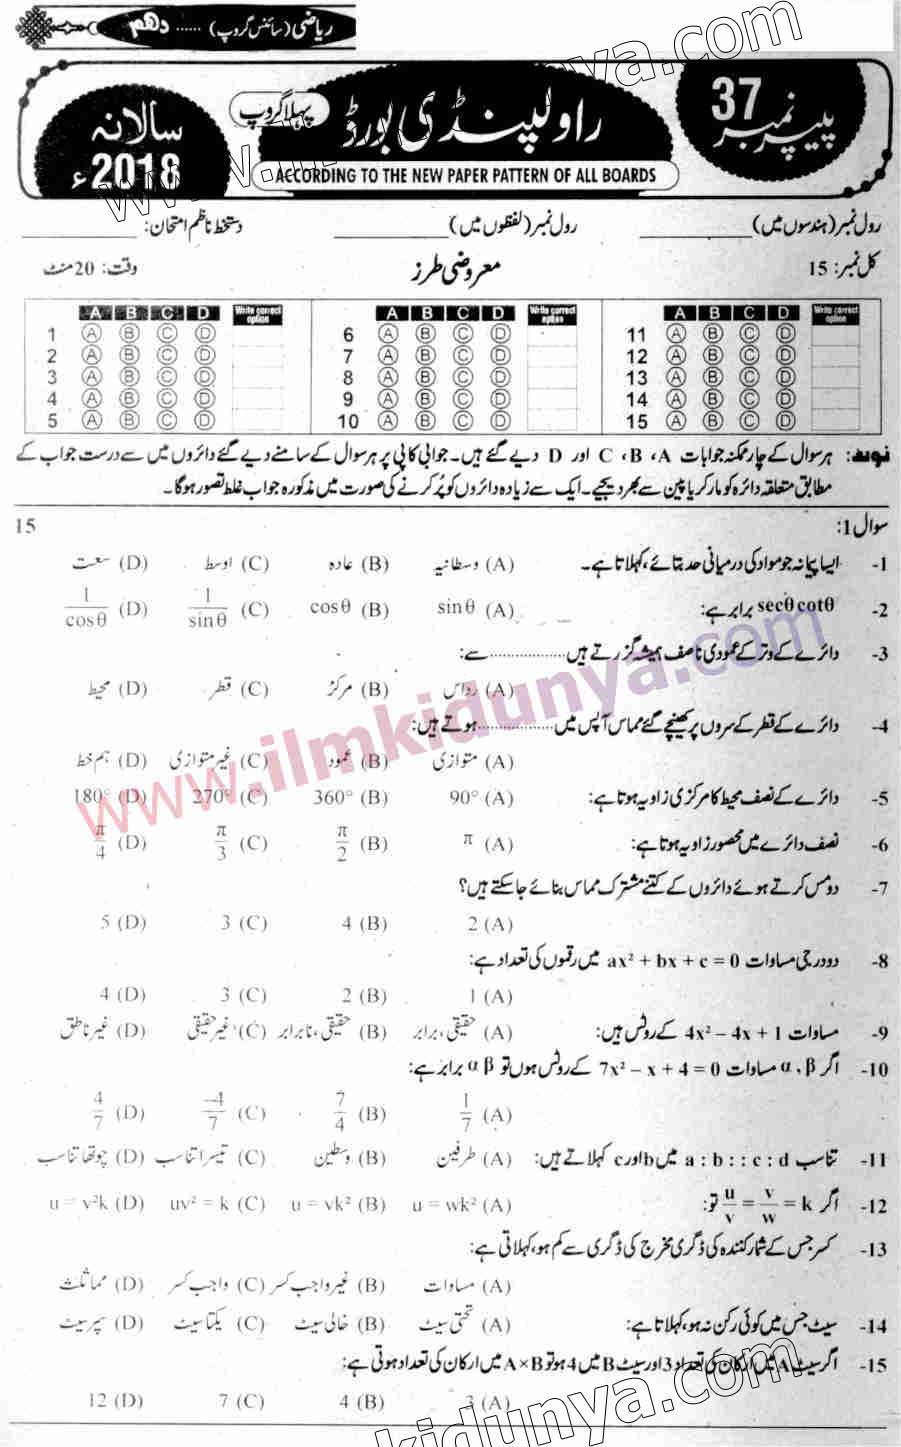 ریاضی (سائنس گروپ) ...... دهم
پیپر نمبر 37
راولپنڈی بورڈ
پہلا گروپ
سالانہ 2018ء
ACCORDING TO THE NEW PAPER PATTERN OF ALL BOARDS
رول نمبر (ہندسوں میں) ____________ رول نمبر (لفظوں میں) ____________ دستخط ناظم امتحان: ____________
کل نمبر: 15 معروضی طرز وقت: 20 منٹ
A B C D Write correct option A B C D Write correct option A B C D Write correct option
1 A B C D 6 A B C D 11 A B C D
2 A B C D 7 A B C D 12 A B C D
3 A B C D 8 A B C D 13 A B C D
4 A B C D 9 A B C D 14 A B C D
5 A B C D 10 A B C D 15 A B C D
نوٹ: ہر سوال کے چار ممکنہ جوابات A، B، C اور D دیے گئے ہیں۔ جوابی کاپی پر ہر سوال کے سامنے دیے گئے دائروں میں سے درست جواب کے
مطابق متعلقہ دائرہ کو مارکر یا پین سے بھر دیجیے۔ ایک سے زیادہ دائروں کو پُر کرنے کی صورت میں مذکورہ جواب غلط تصور ہوگا۔
سوال 1: 15
1- ایسا پیمانہ جو مواد کی درمیانی حد بتائے، کہلاتا ہے۔ (A) وسطانیہ (B) عادہ (C) اوسط (D) سعت
2- secθcotθ برابر ہے: (A) sinθ (B) cosθ (C) 1/sinθ (D) 1/cosθ
3- دائرے کے وتر کے عمودی ناصف ہمیشہ گزرتے ہیں .................. سے:
(A) رداس (B) مرکز (C) قطر (D) محیط
4- دائرے کے قطر کے سروں پر کھینچے گئے مماس آپس میں .................. ہوتے ہیں:
(A) متوازی (B) عمود (C) غیر متوازی (D) ہم خط
5- دائرے کے نصف محیط کا مرکزی زاویہ ہوتا ہے: (A) 90° (B) 360° (C) 270° (D) 180°
6- نصف دائرے میں محصور زاویہ ہوتا ہے: (A) π (B) π/2 (C) π/3 (D) π/4
7- دو مس کرتے ہوئے دائروں کے کتنے مشترک مماس بنائے جا سکتے ہیں؟
(A) 2 (B) 4 (C) 3 (D) 5
8- دو درجی مساوات ax² + bx + c = 0 میں رقموں کی تعداد ہے:
(A) 1 (B) 2 (C) 3 (D) 4
9- مساوات 4x² – 4x + 1 کے روٹس ہیں: (A) حقیقی، برابر (B) حقیقی، نابرابر (C) غیر حقیقی (D) غیر ناطق
10- اگر α، β مساوات 7x² – x + 4 = 0 کے روٹس ہوں تو αβ برابر ہے:
(A) 1/7 (B) 7/4 (C) -4/7 (D) 4/7
11- تناسب a : b : : c : d میں b اور c کہلاتے ہیں: (A) طرفین (B) وسطین (C) تیسرا تناسب (D) چوتھا تناسب
12- اگر u/v = v/w = k تو: (A) u = wk² (B) u = vk² (C) uv² = k (D) u = v²k
13- کسر جس کے شمار کنندہ کی ڈگری مخرج کی ڈگری سے کم ہو، کہلاتی ہے:
(A) مساوات (B) غیر واجب کسر (C) واجب کسر (D) مماثلث
14- سیٹ جس میں کوئی رکن نہ ہو، کہلاتا ہے: (A) تحتی سیٹ (B) خالی سیٹ (C) یکتا سیٹ (D) سپر سیٹ
15- اگر سیٹ A میں ارکان کی تعداد 3 اور سیٹ B میں 4 ہو تو A×B میں ارکان کی تعداد ہوتی ہے:
(A) 3 (B) 4 (C) 7 (D) 12
www.ilmkidunya.com